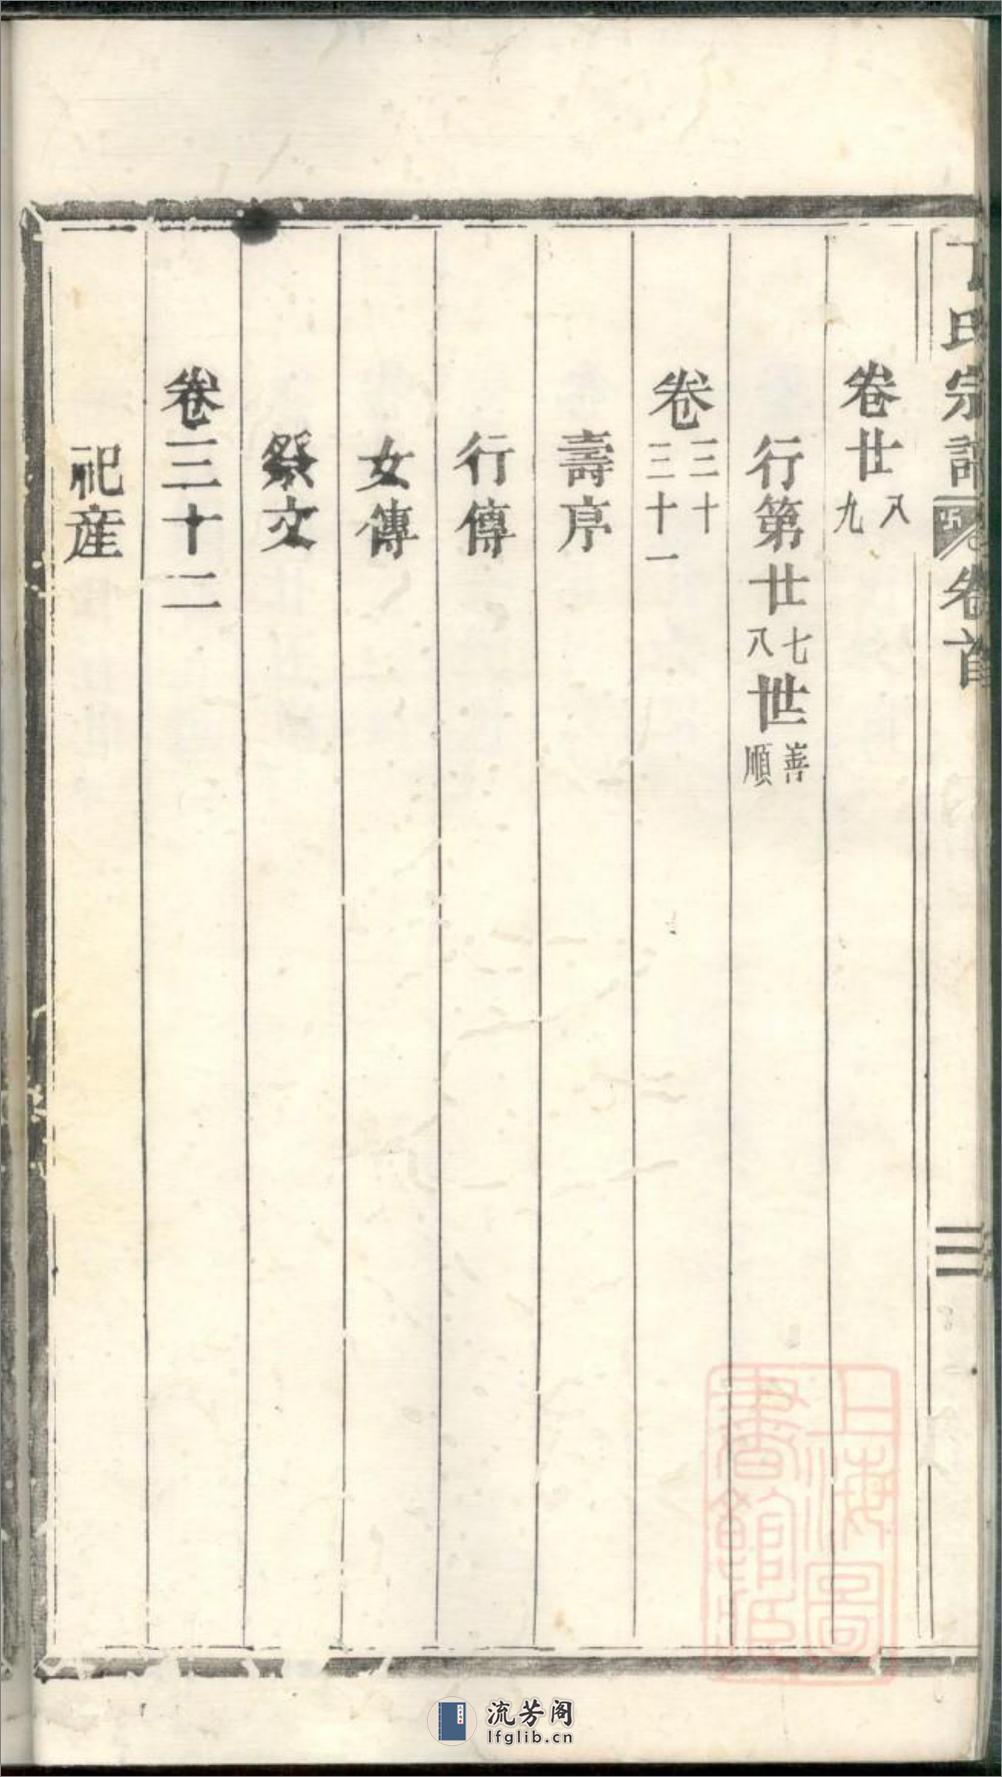 氏宗譜 卷首 三
卷廿八九
行第廿七八世善順
卷三十三十一
壽序
行傳
女傳
祭文
卷三十二
祀產
上海圖書館藏
流芳阁
lfglib.cn